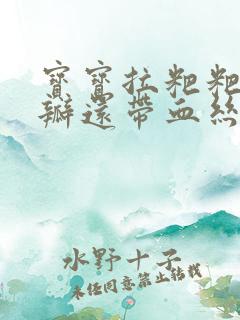 寶寶拉粑粑
瓣還帶血絲
水野十子
未经同意禁止转载